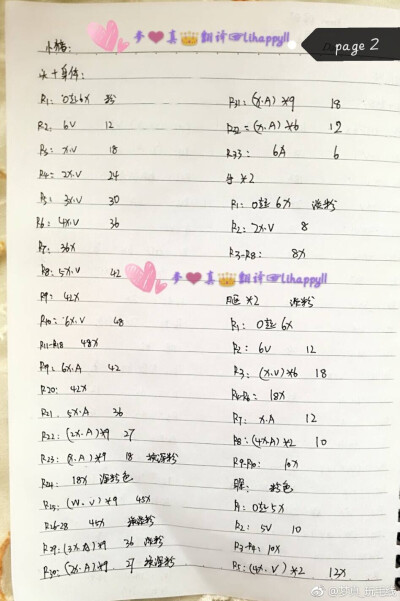 page 2
梦❤真👑翻译☞lihappyll
头+身体:
R1: 0起6X 粉
R2: 6V 12
R3: X.V 18
R4: 2X.V 24
R5: 3X.V 30
R6: 4X.V 36
R7: 36X
R8: 5X.V 42
R9: 42X
R10: 6X.V 48
R11-R18 48X
R19: 6X.A 42
R20: 42X
R21. 5X.A 36
R22: (2X.A)*9 27
R23: (X.A)*9 18 换深粉
R24: 18X 深粉色
R25: (W.V)*9 45X
R26-28 45X 换深粉
R29: (3X.A)*9 36 深粉
R30: (2X.A)*9 27 换深粉
R31: (X.A)*9 18
R32= (X.A)*6 12
R33: 6A 6
手*2
R1: 0起6X 深粉
R2: 2X.V 8
R3-R8: 8X
梦❤真👑翻译☞lihappyll
腿*2 深粉
R1: 0起6X
R2: 6V 12
R3: (X.V)*6 18
R4-R6: 18X
R7: X.A 12
R8: (4X.A)*2 10
R9-R10: 10X
粉色
R1: 0起5X
R2: 5V 10
R3-R4: 10X
R5: (4X.V)*2 12X